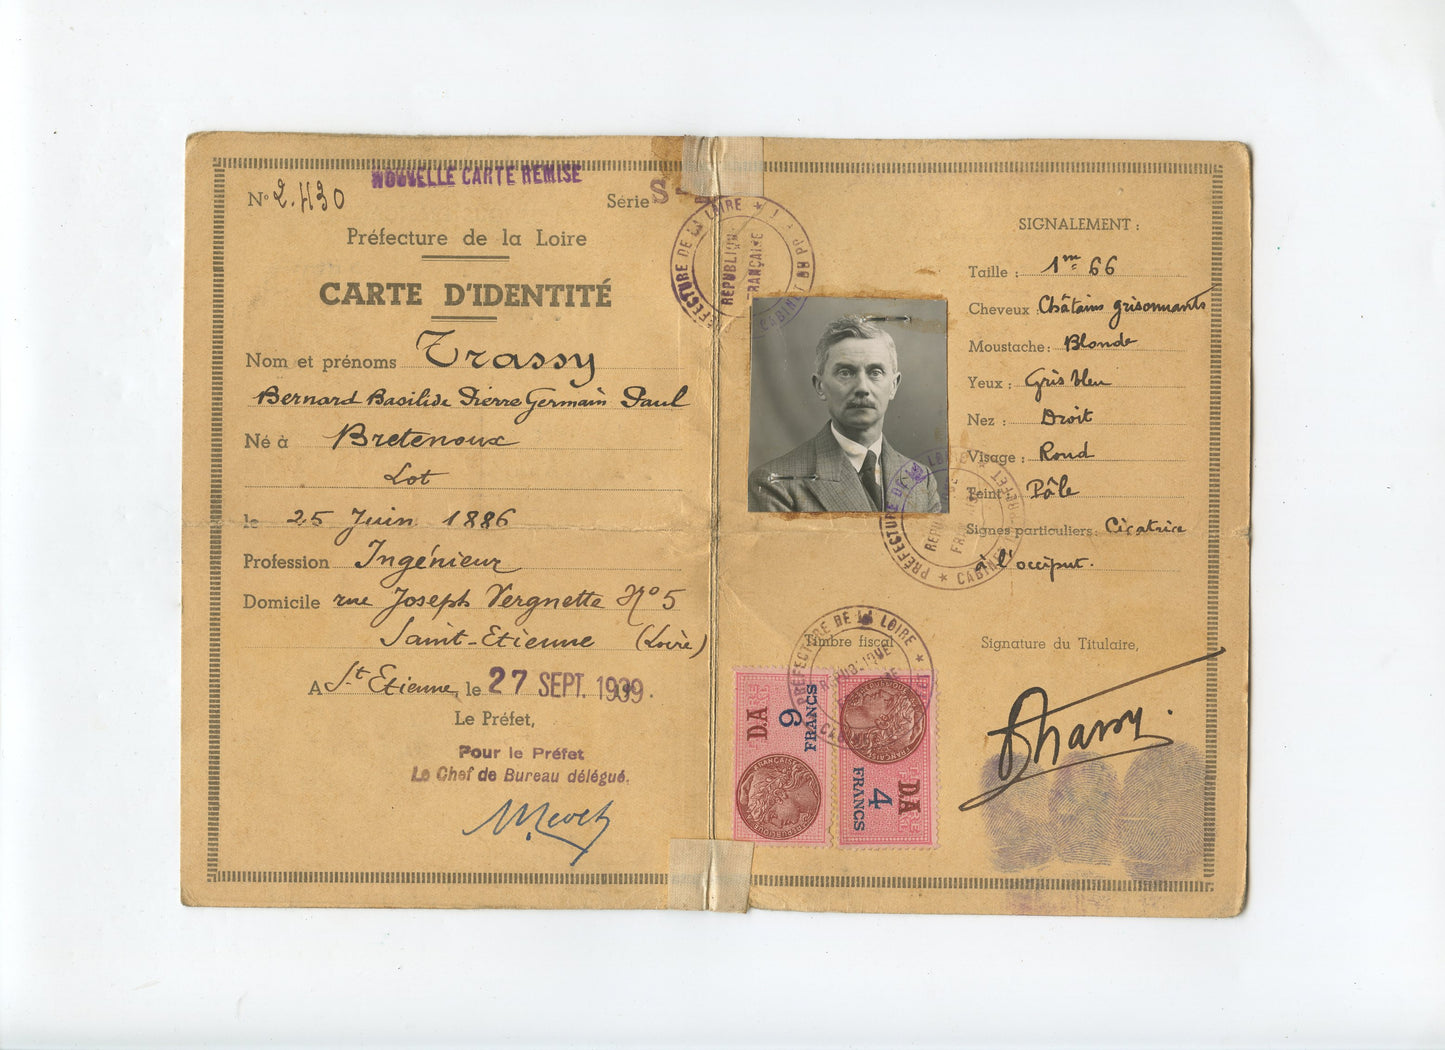 NOUVELLE CARTE REMISE
N° 2.430
Série
Préfecture de la Loire
CARTE D'IDENTITÉ
Nom et prénoms Trassy
Bernard Basilide Pierre Germain Paul
Né à Bretenoux
Lot
le 25 Juin 1886
Profession Ingénieur
Domicile rue Joseph Vergnette N° 5
Saint-Etienne (Loire)
A St Etienne, le 27 SEPT. 1939.
Le Préfet,
Pour le Préfet
Le Chef de Bureau délégué.
PRÉFECTURE DE LA LOIRE
RÉPUBLIQUE
FRANÇAISE
SIGNALEMENT :
Taille : 1m 66
Cheveux : Châtains grisonnants
Moustache : Blonde
Yeux : Gris bleu
Nez : Droit
Visage : Rond
Teint : Pâle
Signes particuliers : Cicatrice
à l'occiput.
PRÉFECTURE DE LA LOIRE
Timbre fiscal
PRÉFECTURE DE LA LOIRE
DA
6
FRANCS
DA
4
FRANCS
Signature du Titulaire,